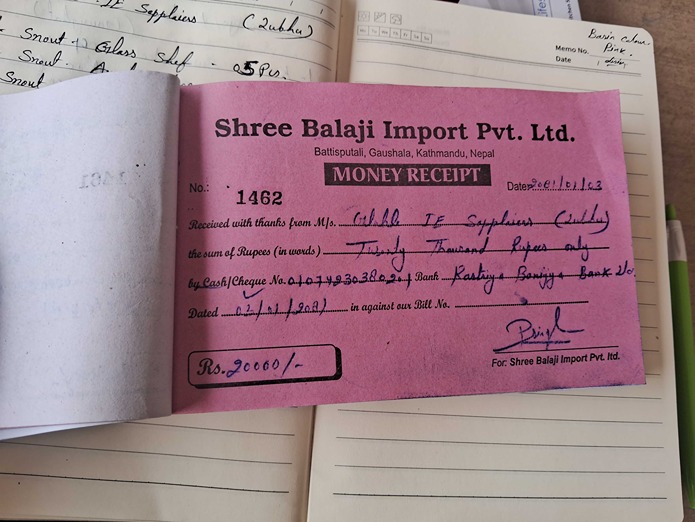 Suppliers (Zubhu)
Snout + Glass Shef - 05 Pcs.
Snout
Snout
Basin Colour
Pink.
Memo No.
Date
Shree Balaji Import Pvt. Ltd.
Battisputali, Gaushala, Kathmandu, Nepal
MONEY RECEIPT
No.: 1462
Date: 2081/01/03
Received with thanks from M/s. Suppliers (Zubhu)
the sum of Rupees (in words) Twenty Thousand Rupees only
by Cash/Cheque No. Bank Rastriya Banijya Bank
Dated 03/01/2081 in against our Bill No.
Rs. 20000/-
For: Shree Balaji Import Pvt. ltd.